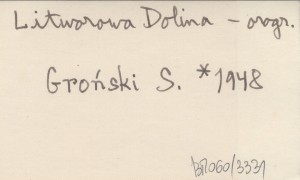 Litworowa Dolina – orogr.
Groński S. *1948